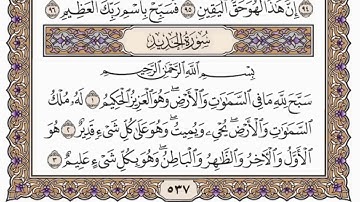 ٩٤ إِنَّ هَٰذَا لَهُوَ حَقُّ الْيَقِينِ ٩٥ فَسَبِّحْ بِاسْمِ رَبِّكَ الْعَظِيمِ ٩٦
سُورَةُ الْحَدِيدِ
بِسْمِ اللَّهِ الرَّحْمَٰنِ الرَّحِيمِ
سَبَّحَ لِلَّهِ مَا فِي السَّمَاوَاتِ وَالْأَرْضِ ۖ وَهُوَ الْعَزِيزُ الْحَكِيمُ ١ لَهُ مُلْكُ
السَّمَاوَاتِ وَالْأَرْضِ ۖ يُحْيِي وَيُمِيتُ ۖ وَهُوَ عَلَىٰ كُلِّ شَيْءٍ قَدِيرٌ ٢ هُوَ
الْأَوَّلُ وَالْآخِرُ وَالظَّاهِرُ وَالْبَاطِنُ ۖ وَهُوَ بِكُلِّ شَيْءٍ عَلِيمٌ ٣
٥٣٧